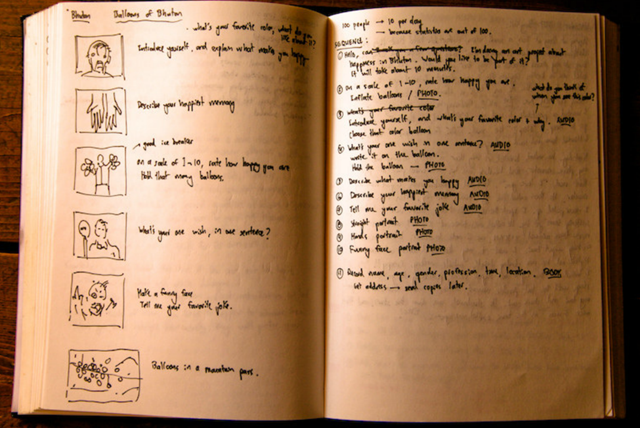 Bhutan Balloons of Bhutan
what's your favorite color, what do you like about it?
Introduce yourself, and explain what makes you happy
Describe your happiest memory
good ice breaker
On a scale of 1-10, rate how happy you are
Hold that many balloons.
What's your one wish, in one sentence?
Make a funny face
Tell me your favorite joke.
Balloons in a mountain pass.
100 people → 10 per day
→ because statistics are out of 100.
SEQUENCE:
① Hello, I'm doing an art project about
happiness in Bhutan. Would you like to be part of it?
It will take about 10 minutes.
② On a scale of 1-10, rate how happy you are.
Inflate balloons / PHOTO.
what do you think of
when you see this color?
③ What's your favorite color
Introduce yourself, and what's your favorite color & why. AUDIO
choose that color balloon
④ What's your one wish in one sentence? AUDIO
write it on the balloon.
Hold the balloon — PHOTO
⑤ Describe what makes you happy AUDIO
⑥ Describe your happiest memory AUDIO
⑦ Tell me your favorite joke AUDIO
⑧ Straight portrait PHOTO
⑨ Hands portrait PHOTO
⑩ Funny face portrait PHOTO
⑪ Record name, age, gender, profession, time, location. BOOK
Get address → send copies later.